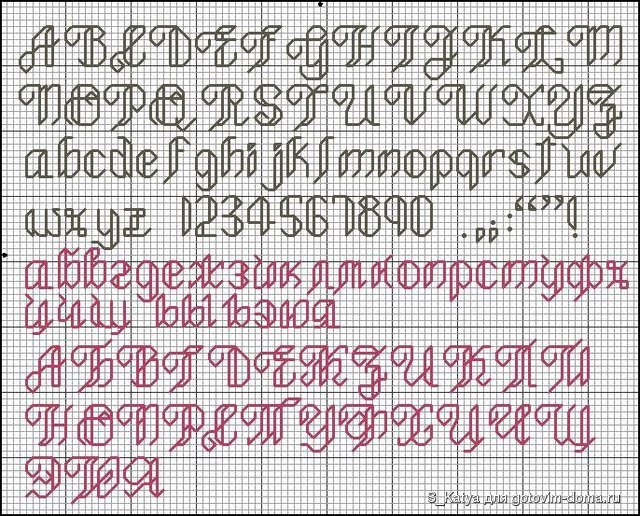 ABCDEFGHIJKLM
NOPQRSTUVWXYZ
abcdefghijklmnopqrstuv
wxyz 1234567890 .,;:“”!
абвгдежзиклмнопрстуфх
цчщ ъыьэюя
АБВГДЕЖЗИКЛМ
НОПРСТУФХЦЧЩ
ЭЮЯ
S_Katya для gotovim-doma.ru